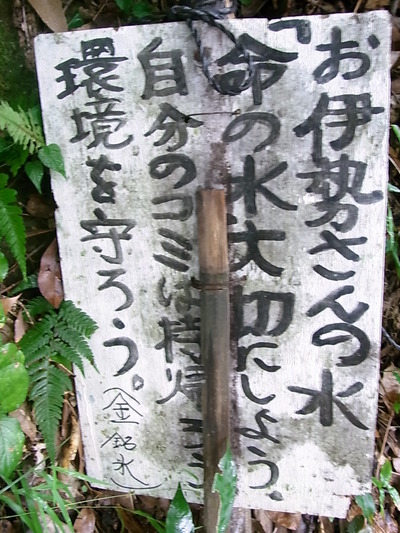 お伊勢さんの水
「命の水大切にしよう.
自分のゴミは持帰ろう
環境を守ろう。(金銘水)